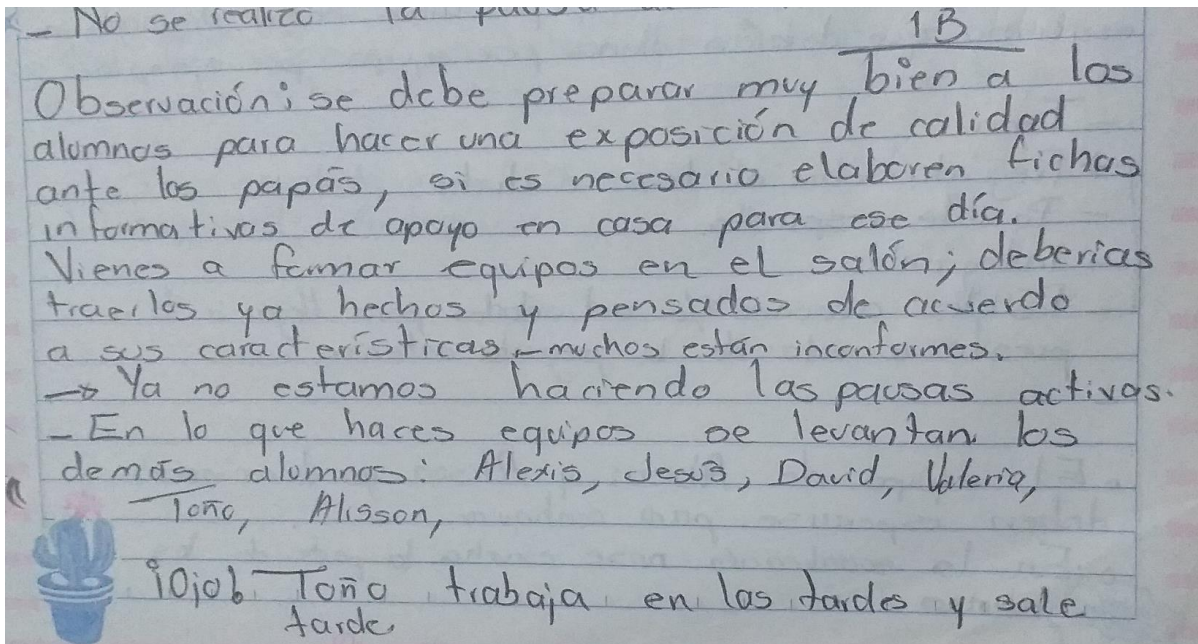 - No se realizó la
1B
Observación: se debe preparar muy bien a los
alumnos para hacer una exposición de calidad
ante los papás, si es necesario elaboren fichas
informativas de apoyo en casa para ese día.
Vienes a formar equipos en el salón; deberias
traerlos ya hechos y pensados de acuerdo
a sus características, - muchos están inconformes.
→ Ya no estamos haciendo las pausas activas.
- En lo que haces equipos se levantan los
demás alumnos: Alexis, Jesús, David, Valeria,
Toño, Alisson,
¡Ojo! Toño trabaja en las tardes y sale
tarde.